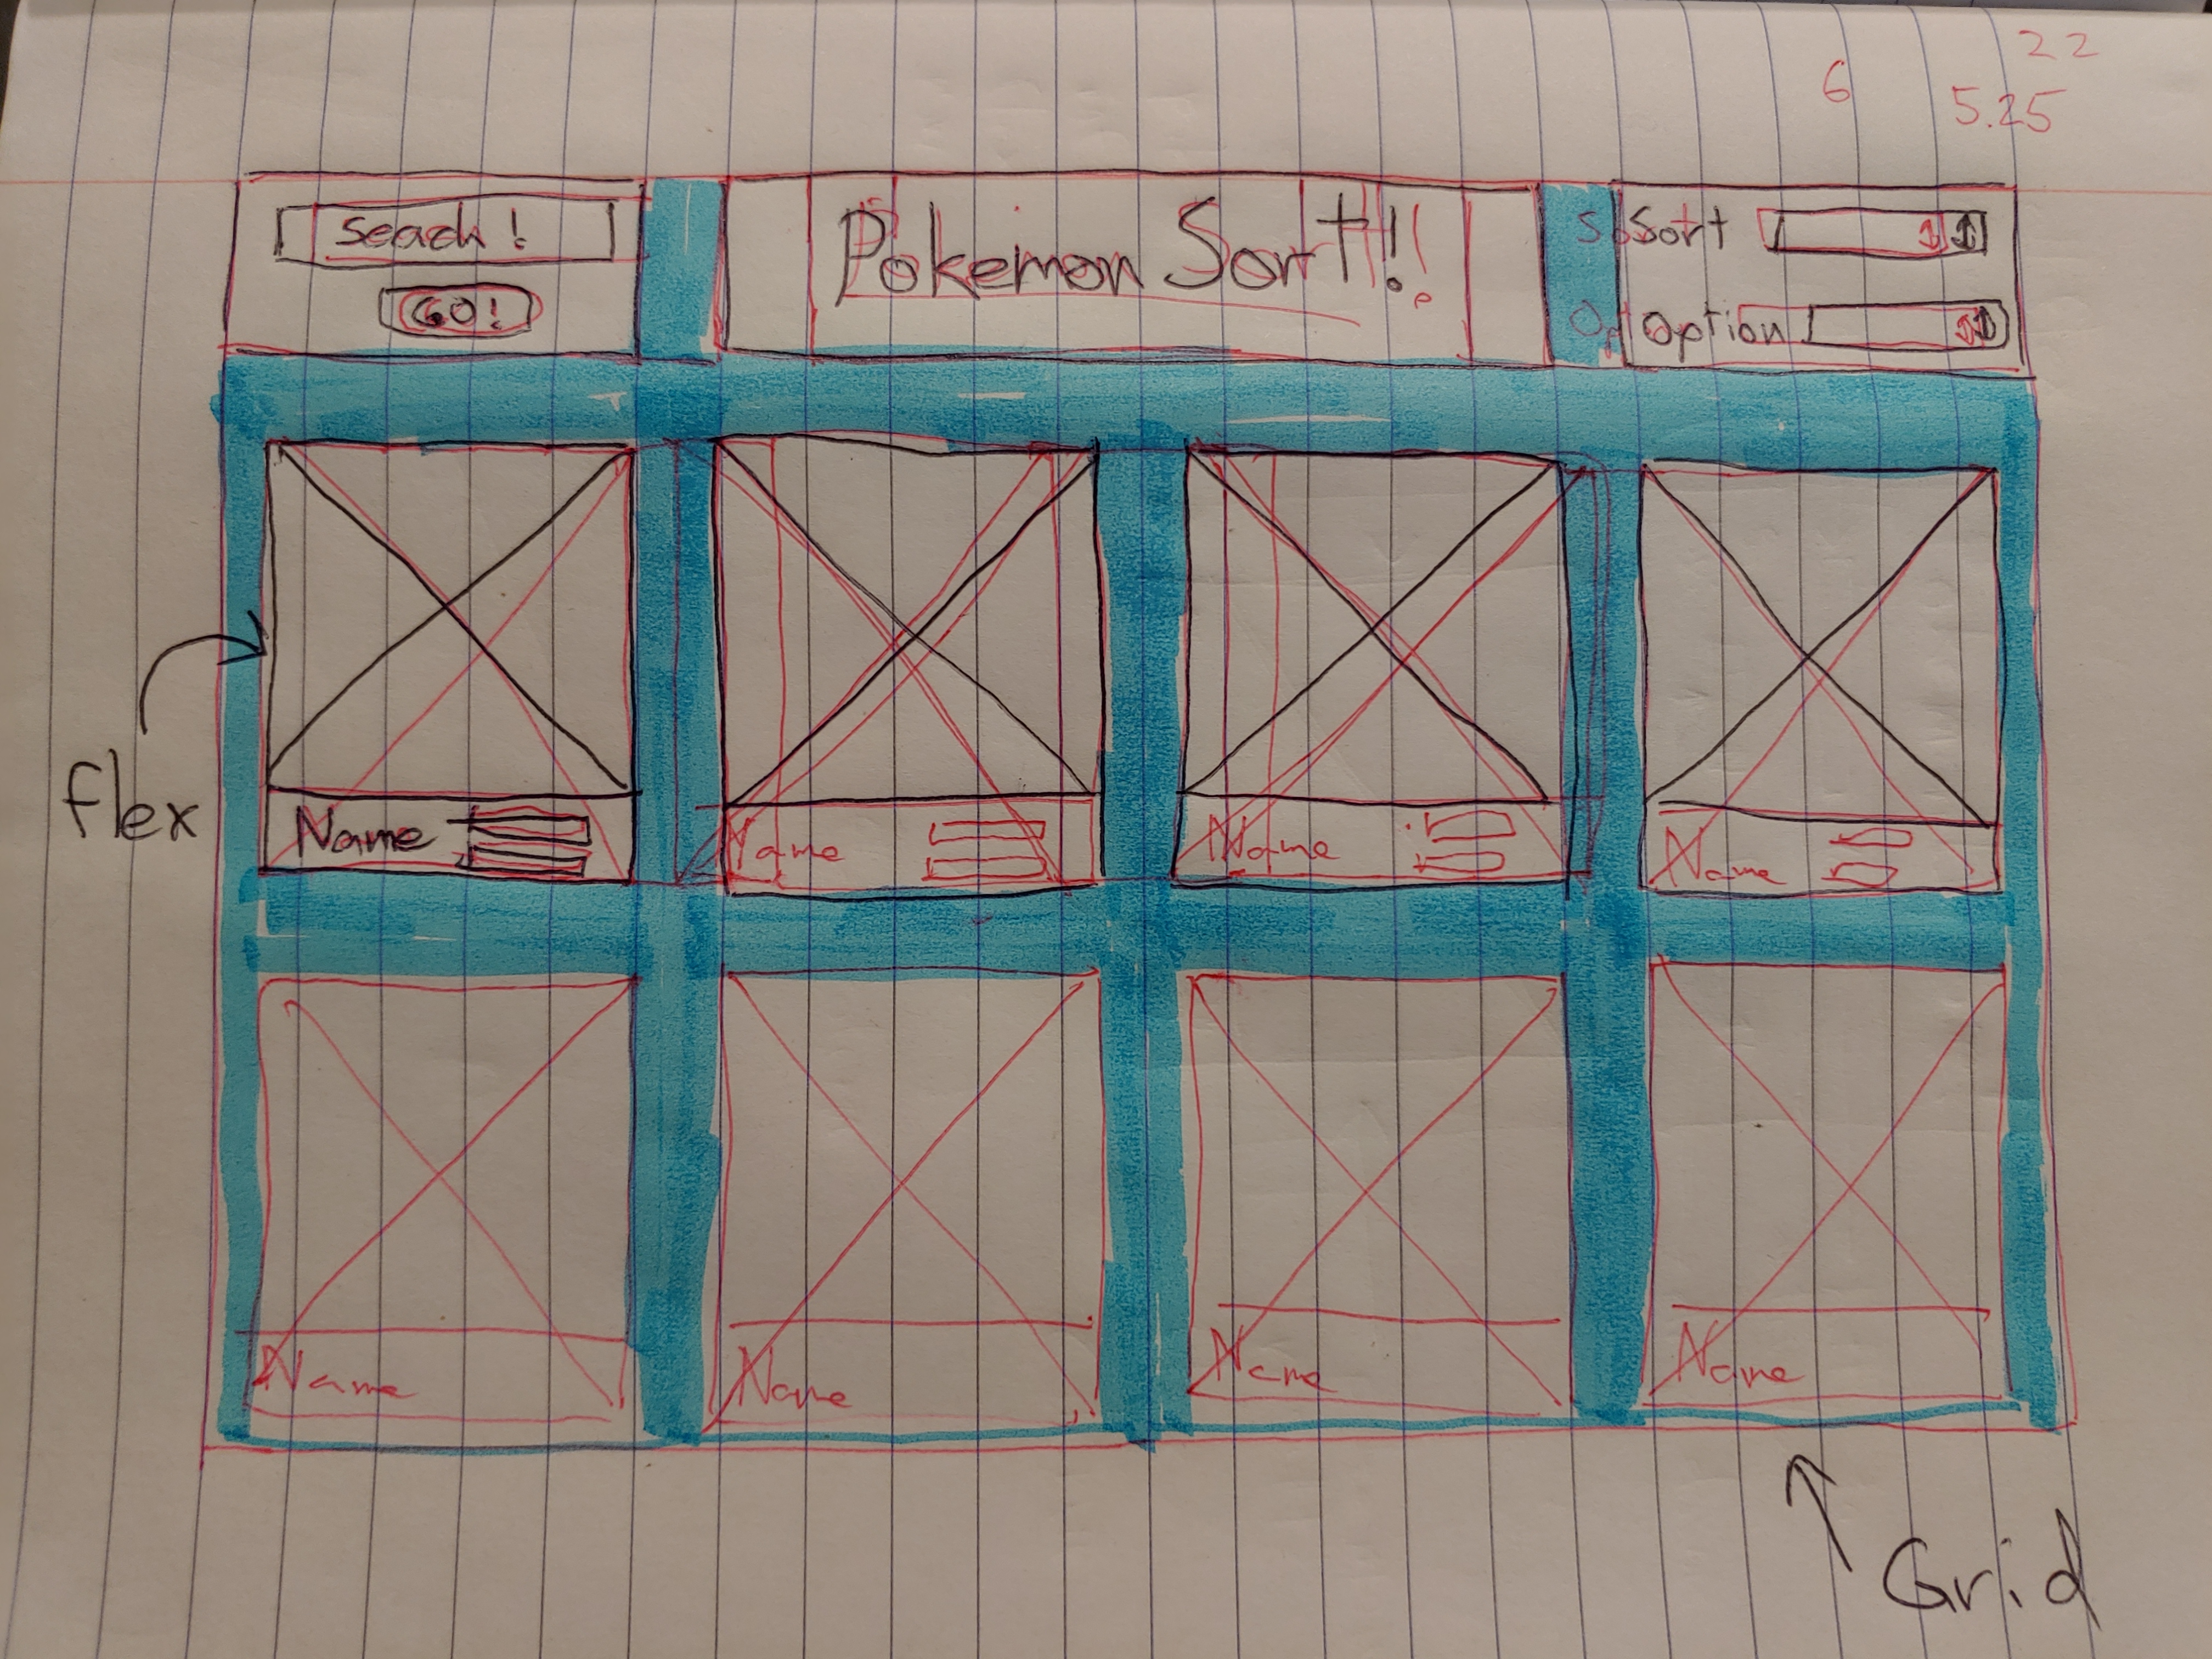 22
6
5.25
Seach!
GO!
Pokemon Sort!!
Sort
Option
flex
Name
Name
Name
Name
Name
Name
Name
Name
Grid